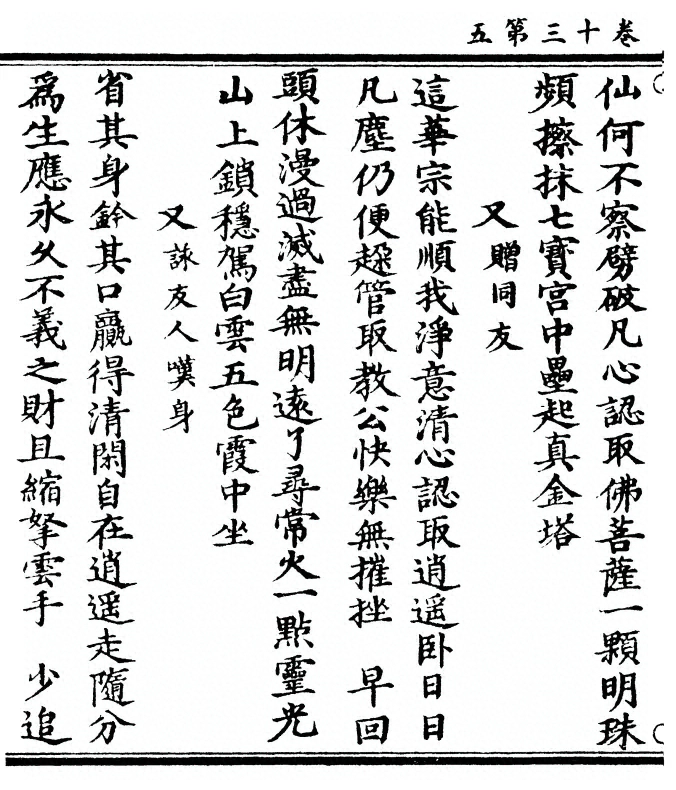 卷十三第五
仙何不察劈破凡心認取佛菩薩一顆明珠
頻擦抹七寶宮中壘起真金塔
又贈同友
這華宗能順我淨意清心認取逍遥卧日日
凡塵仍便趓管取教公快樂無摧挫　早回
頭休漫過滅盡無明遠了尋常火一點靈光
山上鎖穩駕白雲五色霞中坐
又詠友人嘆身
省其身鈐其口贏得清閑自在逍遥走隨分
為生應永久不義之財且縮拏雲手　少追